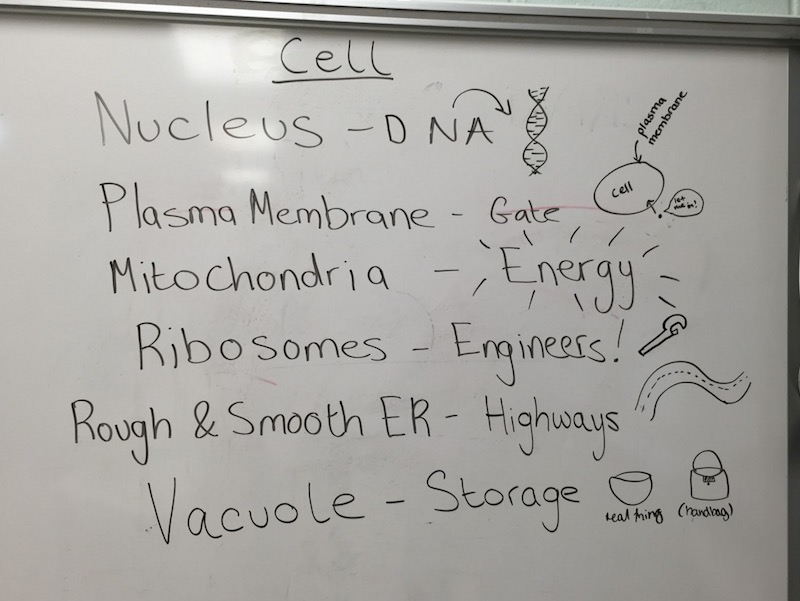 Cell
Nucleus - DNA
plasma membrane
Plasma Membrane - Gate
cell
let me in!
Mitochondria - Energy
Ribosomes - Engineers!
Rough & Smooth ER - Highways
Vacuole - Storage
real thing
(handbag)